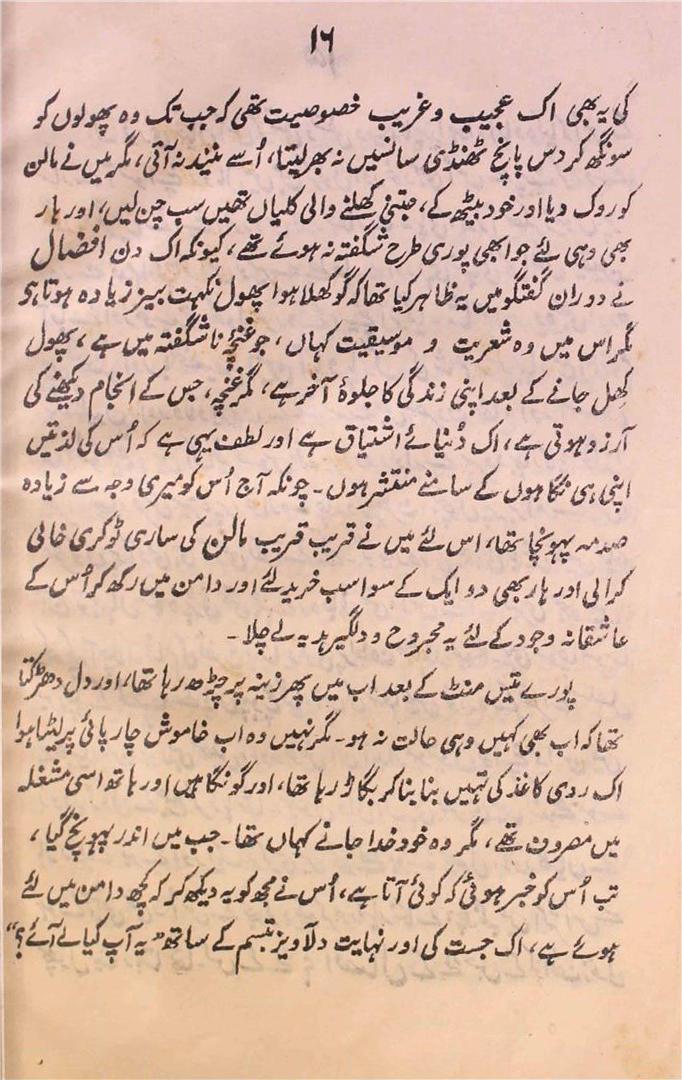 ۱۶
کی یہ بھی اک عجیب و غریب خصوصیت تھی کہ جب تک وہ پھولوں کو
سونگھ کر دس پانچ ٹھنڈی سانسیں نہ بھر لیتا، اُسے نیند نہ آتی، مگر میں نے مالن
کو روک دیا اور خود بیٹھ کے، جتنی کھلنے والی کلیاں تھیں سب چن لیں، اور ہار
بھی وہی لئے جو ابھی پوری طرح شگفتہ نہ ہوئے تھے، کیونکہ اک دن افضال
نے دوران گفتگو میں یہ ظاہر کیا تھا کہ گو کھلا ہوا پھول نکہت بیز زیادہ ہوتا ہی
مگر اس میں وہ شعریت و موسیقیت کہاں، جو غنچۂ ناشگفتہ میں ہے، پھول
کھل جانے کے بعد اپنی زندگی کا جلوۂ آخر ہے، مگر غنچہ، جس کے انجام دیکھنے کی
آرزو ہوتی ہے، اک دُنیائے اشتیاق ہے اور لطف یہی ہے کہ اُس کی لذتیں
اپنی ہی نگاہوں کے سامنے منتشر ہوں۔ چونکہ آج اُس کو میری وجہ سے زیادہ
صدمہ پہونچا تھا، اس لئے میں نے قریب قریب مالن کی ساری ٹوکری خالی
کرالی اور ہار بھی دو ایک کے سوا سب خرید لئے اور دامن میں رکھ کر اُس کے
عاشقانہ وجود کے لئے یہ مجروح و دلگیر ہدیہ لے چلا۔
پورے تیس منٹ کے بعد اب میں پھر زینہ پر چڑھ رہا تھا، اور دل دھڑکتا
تھا کہ اب بھی کہیں وہی حالت نہ ہو۔ مگر نہیں وہ اب خاموش چارپائی پر لیٹا ہوا
اک ردی کاغذ کی تہیں بنا بنا کر بگاڑ رہا تھا، اور گو نگاہیں اور ہاتھ اسی مشغلہ
میں مصروف تھے، مگر وہ خود خدا جانے کہاں تھا۔ جب میں اندر پہونچ گیا،
تب اُس کو خبر ہوئی کہ کوئی آتا ہے، اُس نے مجھ کو یہ دیکھ کر کہ کچھ دامن میں لئے
ہوئے ہے، اک جست کی اور نہایت دلآویز تبسم کے ساتھ ”یہ آپ کیا لے آئے؟“